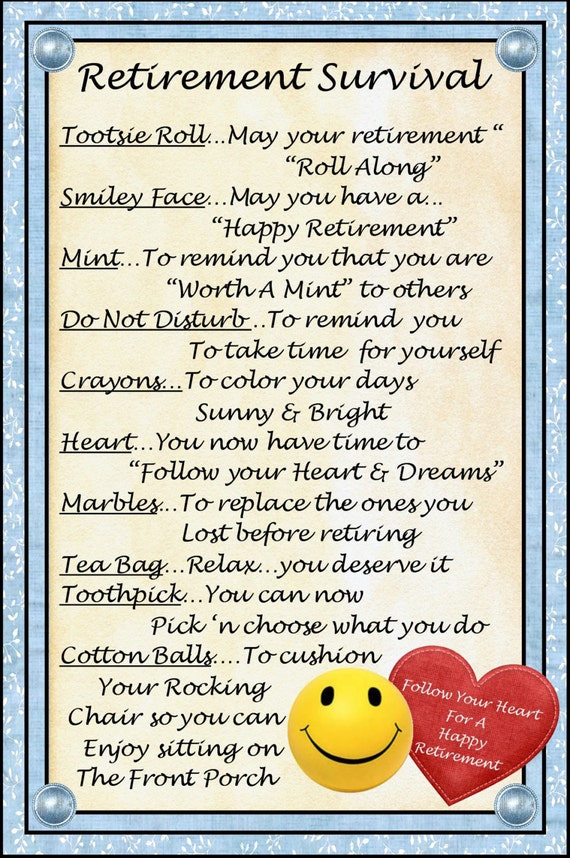 Retirement Survival
Tootsie Roll...May your retirement “
“Roll Along”
Smiley Face...May you have a...
“Happy Retirement”
Mint...To remind you that you are
“Worth A Mint” to others
Do Not Disturb...To remind you
To take time for yourself
Crayons...To color your days
Sunny & Bright
Heart...You now have time to
“Follow your Heart & Dreams”
Marbles...To replace the ones you
Lost before retiring
Tea Bag...Relax...you deserve it
Toothpick...You can now
Pick ‘n choose what you do
Cotton Balls....To cushion
Your Rocking
Chair so you can
Enjoy sitting on
The Front Porch
Follow Your Heart
For A
Happy
Retirement